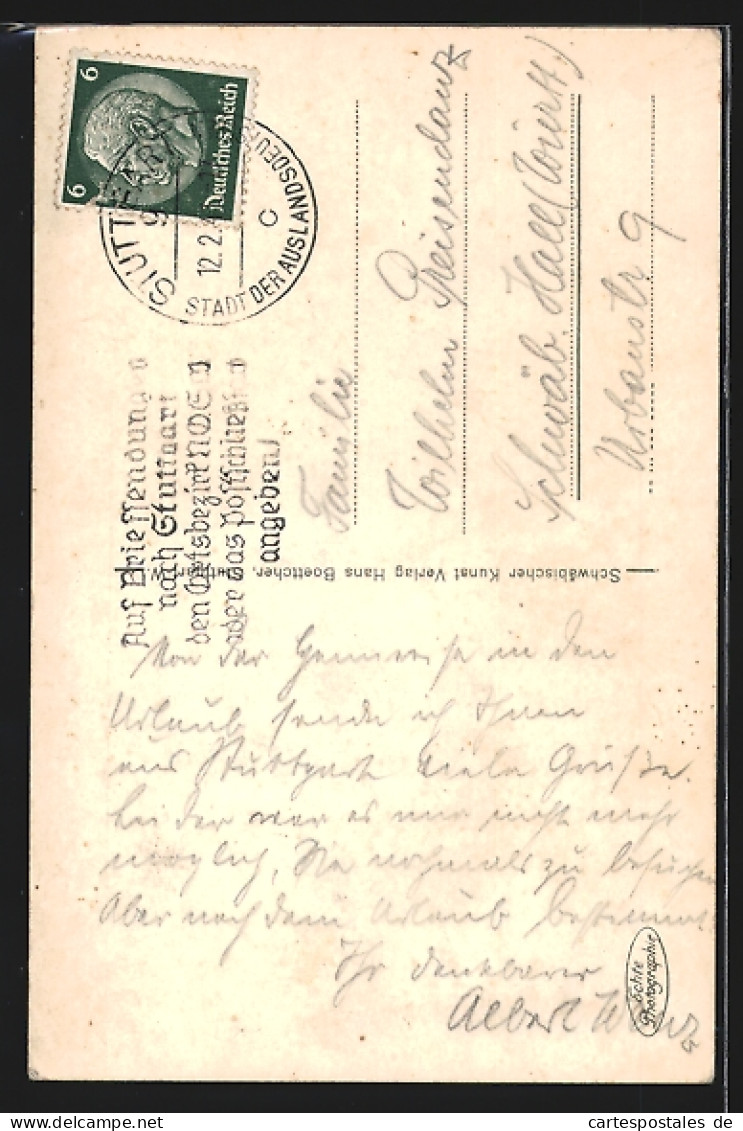 6
6
Deutsches Reich
STUTTGART 9
12.2.4
STADT DER AUSLANDSDEUT
C
Auf Briefsendungen
nach Stuttgart
den Amtsbezirk NOS W
oder das Postschließfach
angeben
Familie
Wilhelm Preisendanz
Schwäb. Hall (Württ)
Urbanstr 9
Schwäbischer Kunst Verlag Hans Boettcher, Stuttgart W.
Von der Heimreise in den
Urlaub sende ich Ihnen
aus Stuttgart viele Grüße.
Leider war es mir nicht mehr
möglich, Sie nochmals zu besuchen
Aber nach dem Urlaub bestimmt
Ihr dankbarer
Albert
Echte
Photographie
cartespostales de